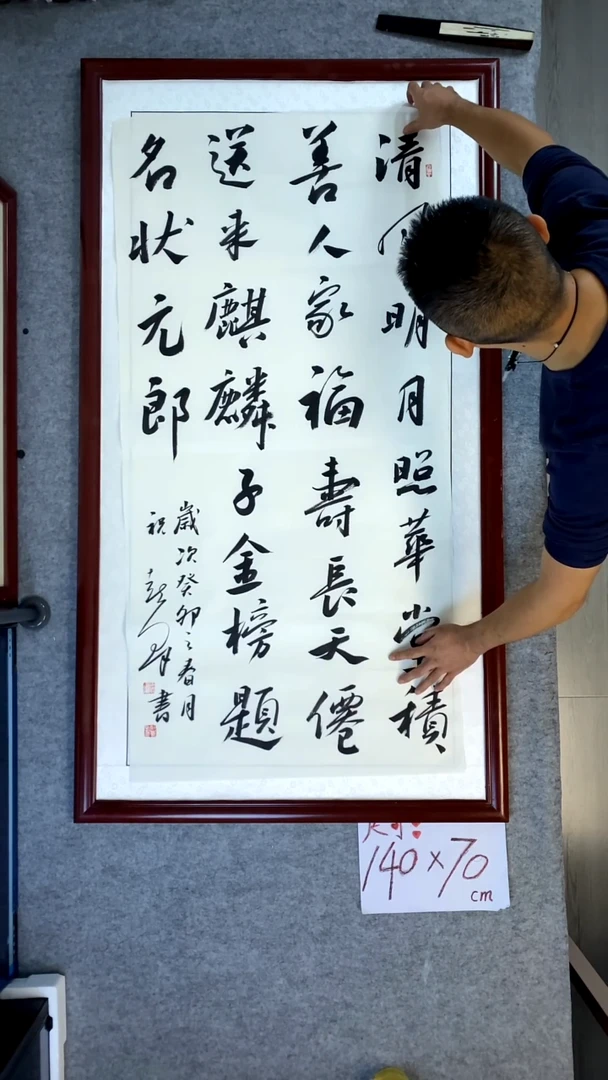 清风明月照華堂積
善人家福壽長天僊
送来麒麟子金榜題
名状元郎
歲次癸卯之春月
祝 書
尺寸:
140×70
cm